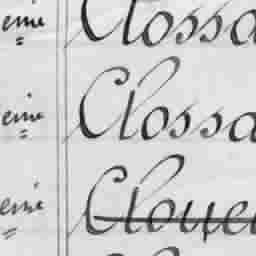 eme Clossa
eme Clossa
eme Cloue